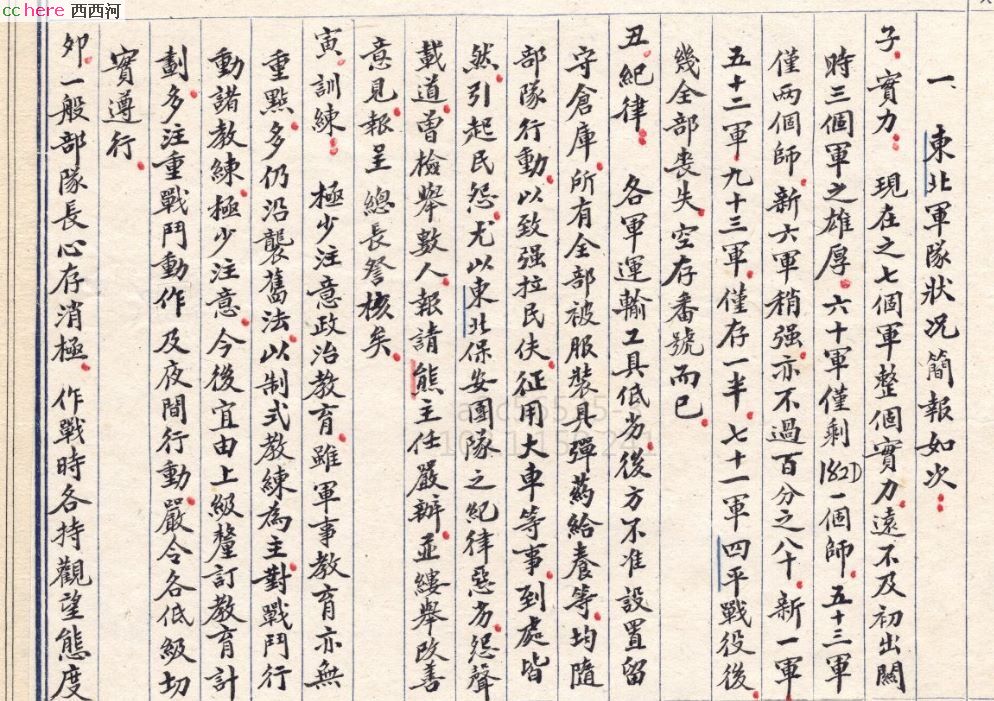 cchere 西西河
一、東北軍隊狀况簡報如次：
子、實力。現在之七個軍整個實力、遠不及初出關
時三個軍之雄厚。六十軍僅剩182D一個師、五十三軍
僅兩個師、新六軍稍强、亦不過百分之八十、新一軍
五十二軍、九十三軍、僅存一半、七十一軍四平戰役後、
幾全部喪失、空存番號而已。
丑、紀律：各軍運輸工具低劣、後方不准設置留
守倉庫、所有全部被服裝具彈葯給養等、均隨
部隊行動、以致强拉民伕、征用大車等事、到處皆
然、引起民怨、尤以東北保安團隊之紀律惡劣、怨聲
載道、曾檢舉數人、報請熊主任嚴辦、並縷舉改善
意見、報呈總長詧核矣。
寅、訓練：極少注意政治教育、雖軍事教育亦無
重點、多仍沿襲舊法、以制式教練為主、對戰鬥行
動諸教練、極少注意、今後宜由上級釐訂教育計
劃、多注重戰鬥動作及夜間行動、嚴令各低級切
實遵行。
夘、一般部隊長心存消極、作戰時各持觀望態度